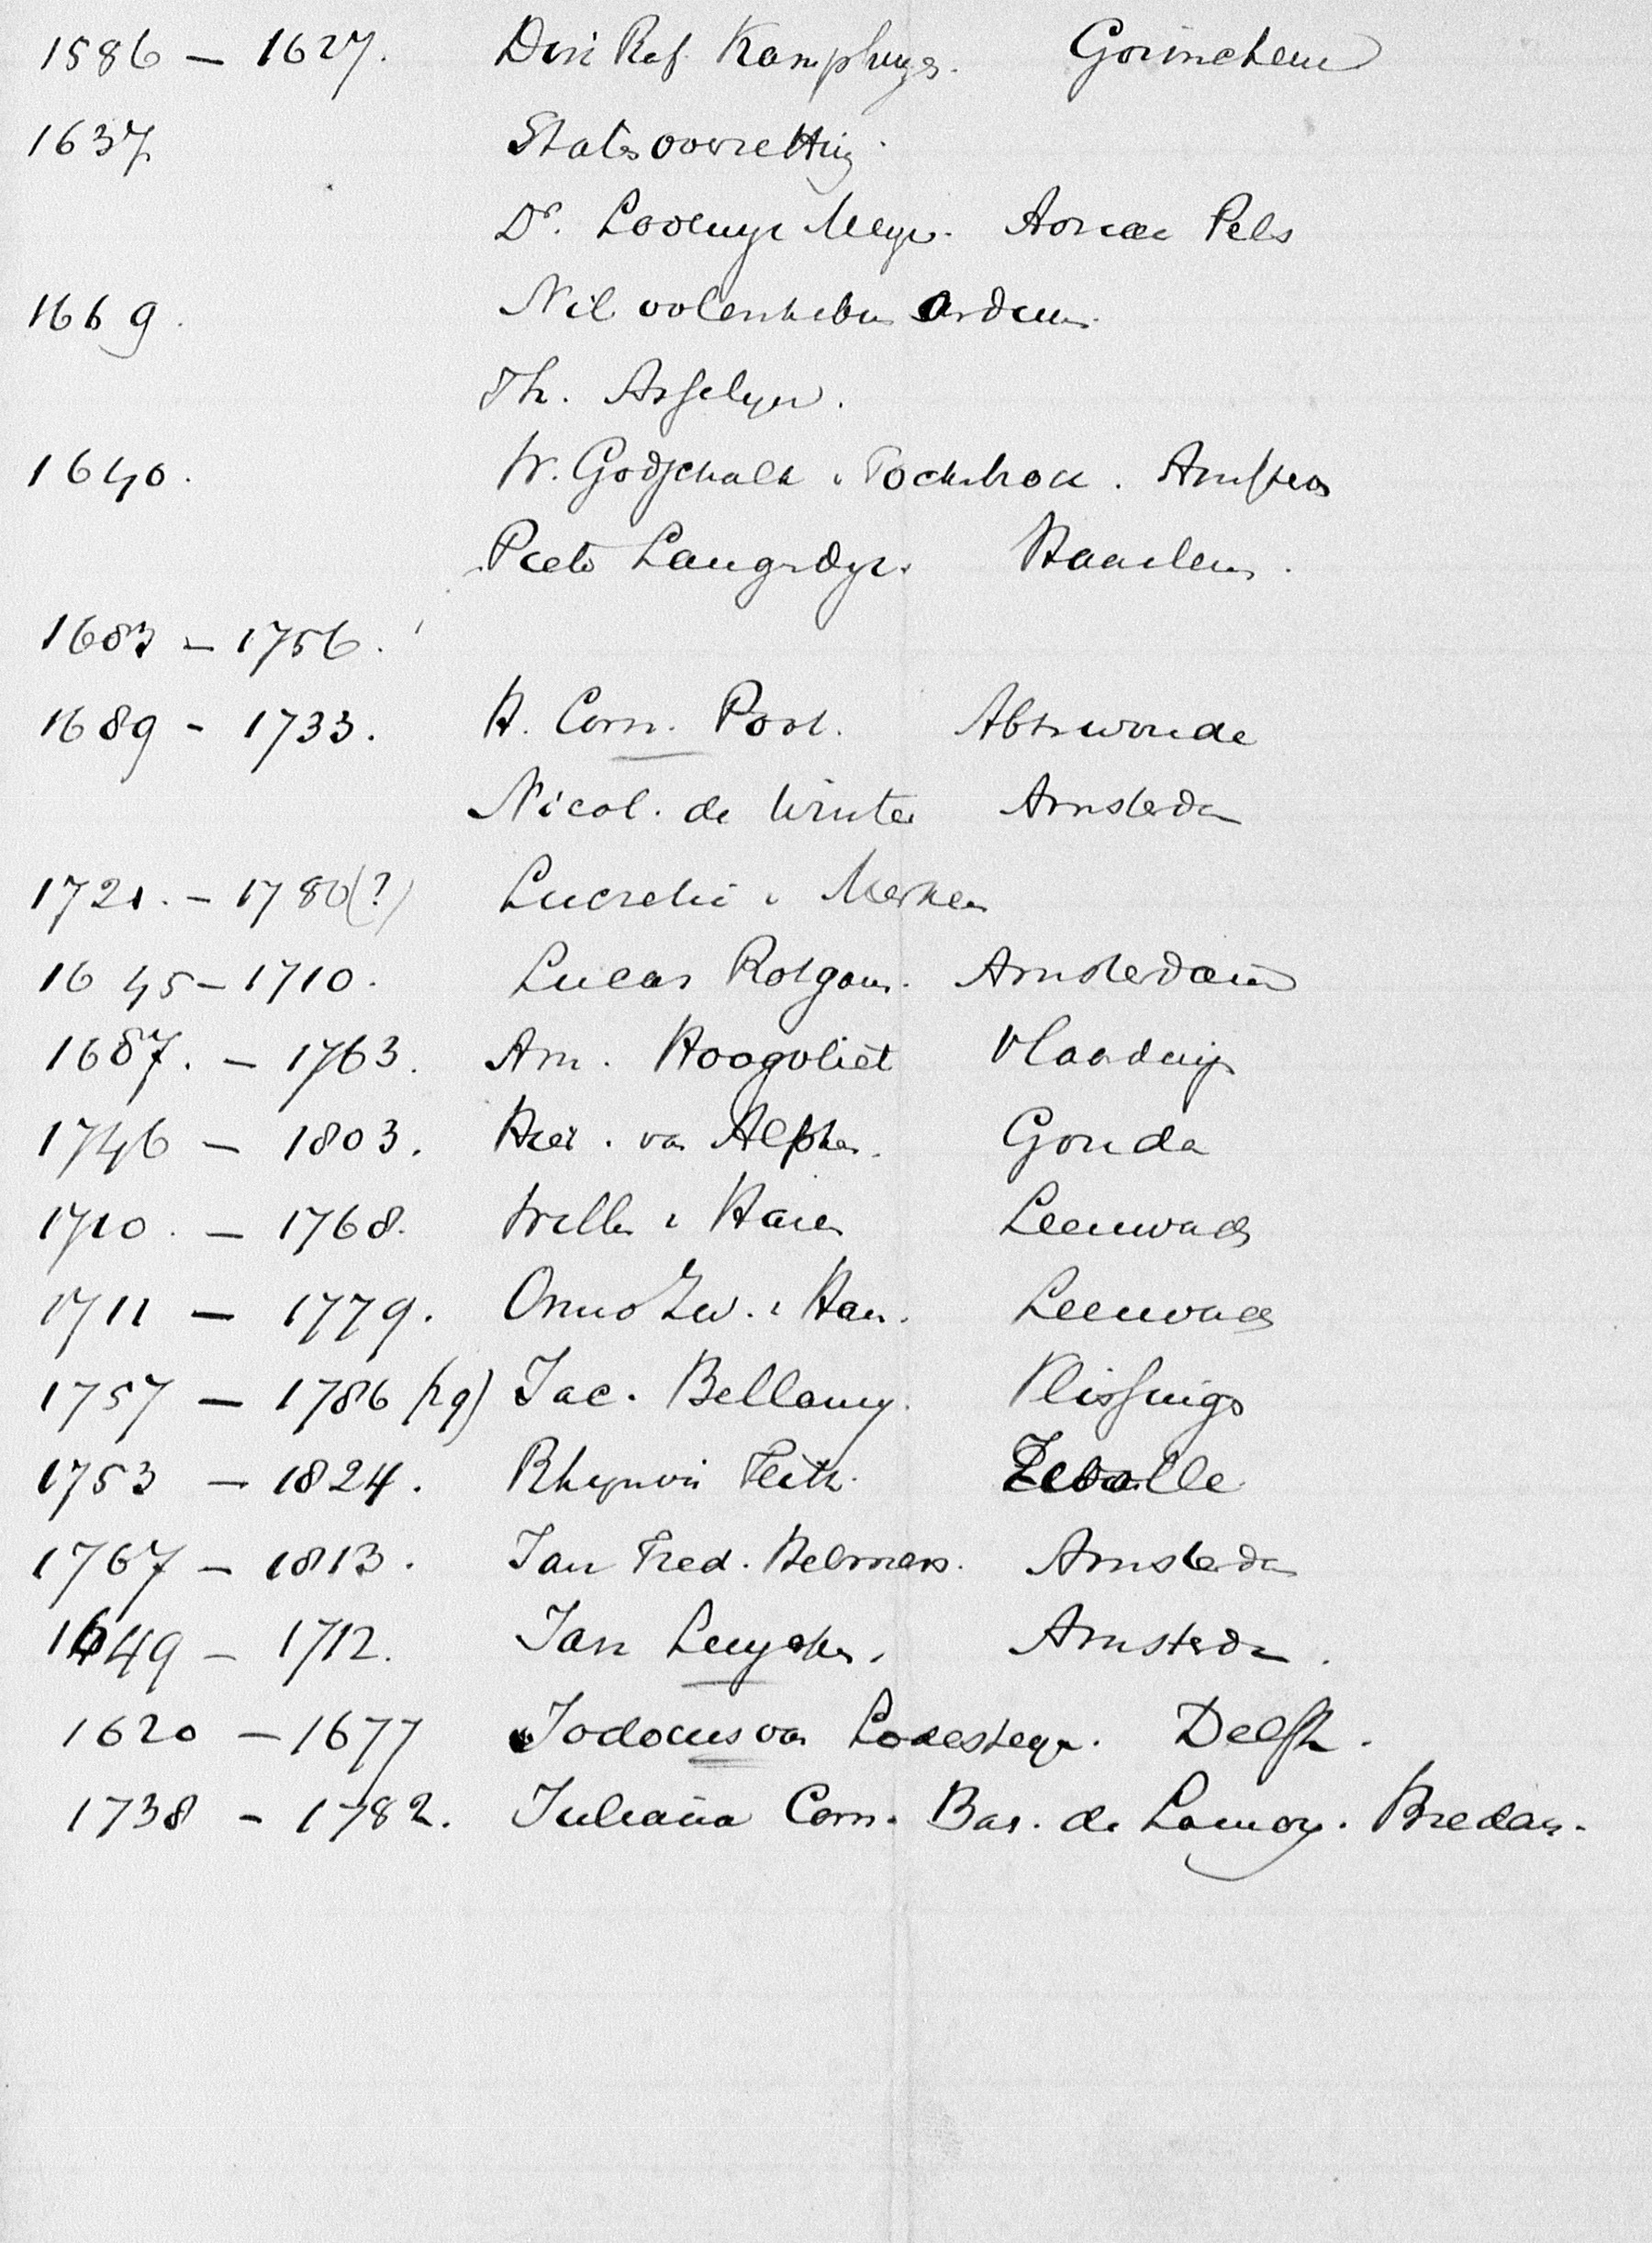 1586 – 1627. Diri Raf. Kamphuys. Gorinchem
1637 Statenoverzetting.
Dr. Lodewyk Meyer. Adriaan Pels
1669. Nil volentibus Arduum.
Th. Asselyn.
1640. W. Godschalk v Fockenbroch. Amsterd
Pieter Langendyk. Haarlem.
1683 – 1756.
1689 - 1733. H. Corn. Poot. Abtswoude
Nicol. de Winter Amsterdam
1721. – 1780(?) Lucretia v Merken
1645 – 1710. Lucas Rotgans. Amsterdam
1687. – 1763. Arn. Hoogvliet Vlaarding
1746 – 1803. Hier. van Alphen. Gouda
1710. – 1768. Willem v Haren Leeuward
1711 – 1779. Onno Zw. v Har. Leeuward
1757 – 1786 (29) Jac. Bellamy. Vlissinge
1753 – 1824. Rhynvis Feith. Zwolle
1767 – 1813. Jan Fred. Helmers. Amsterdam
1649 – 1712. Jan Luyken. Amsterdam.
1620 – 1677 Jodocus van Lodesteyn. Delft.
1738 - 1782. Juliana Corn. Bar. de Lannoy. Breda.